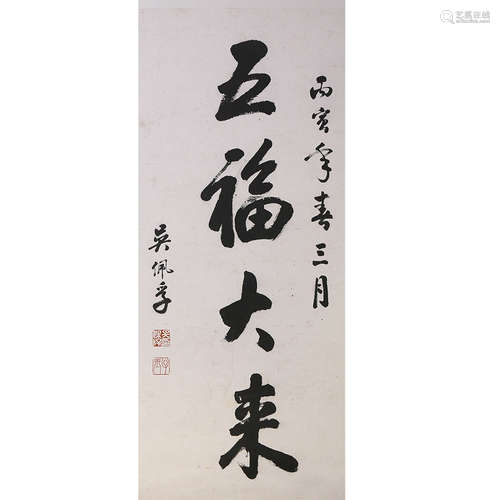 丙寅年春三月
五福大来
吴佩孚